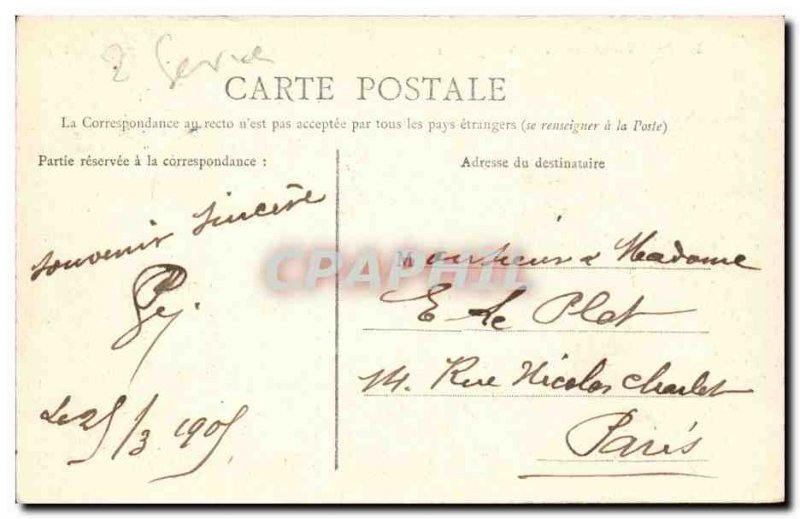 2
CARTE POSTALE
La Correspondance au recto n'est pas acceptée par tous les pays étrangers (se renseigner à la Poste)
Partie réservée à la correspondance :
Adresse du destinataire
Souvenir Sincère
Le 25/3 1905
Monsieur & Madame
E Le Plat
14. Rue Nicolas Charlet
Paris
CPAPHIL